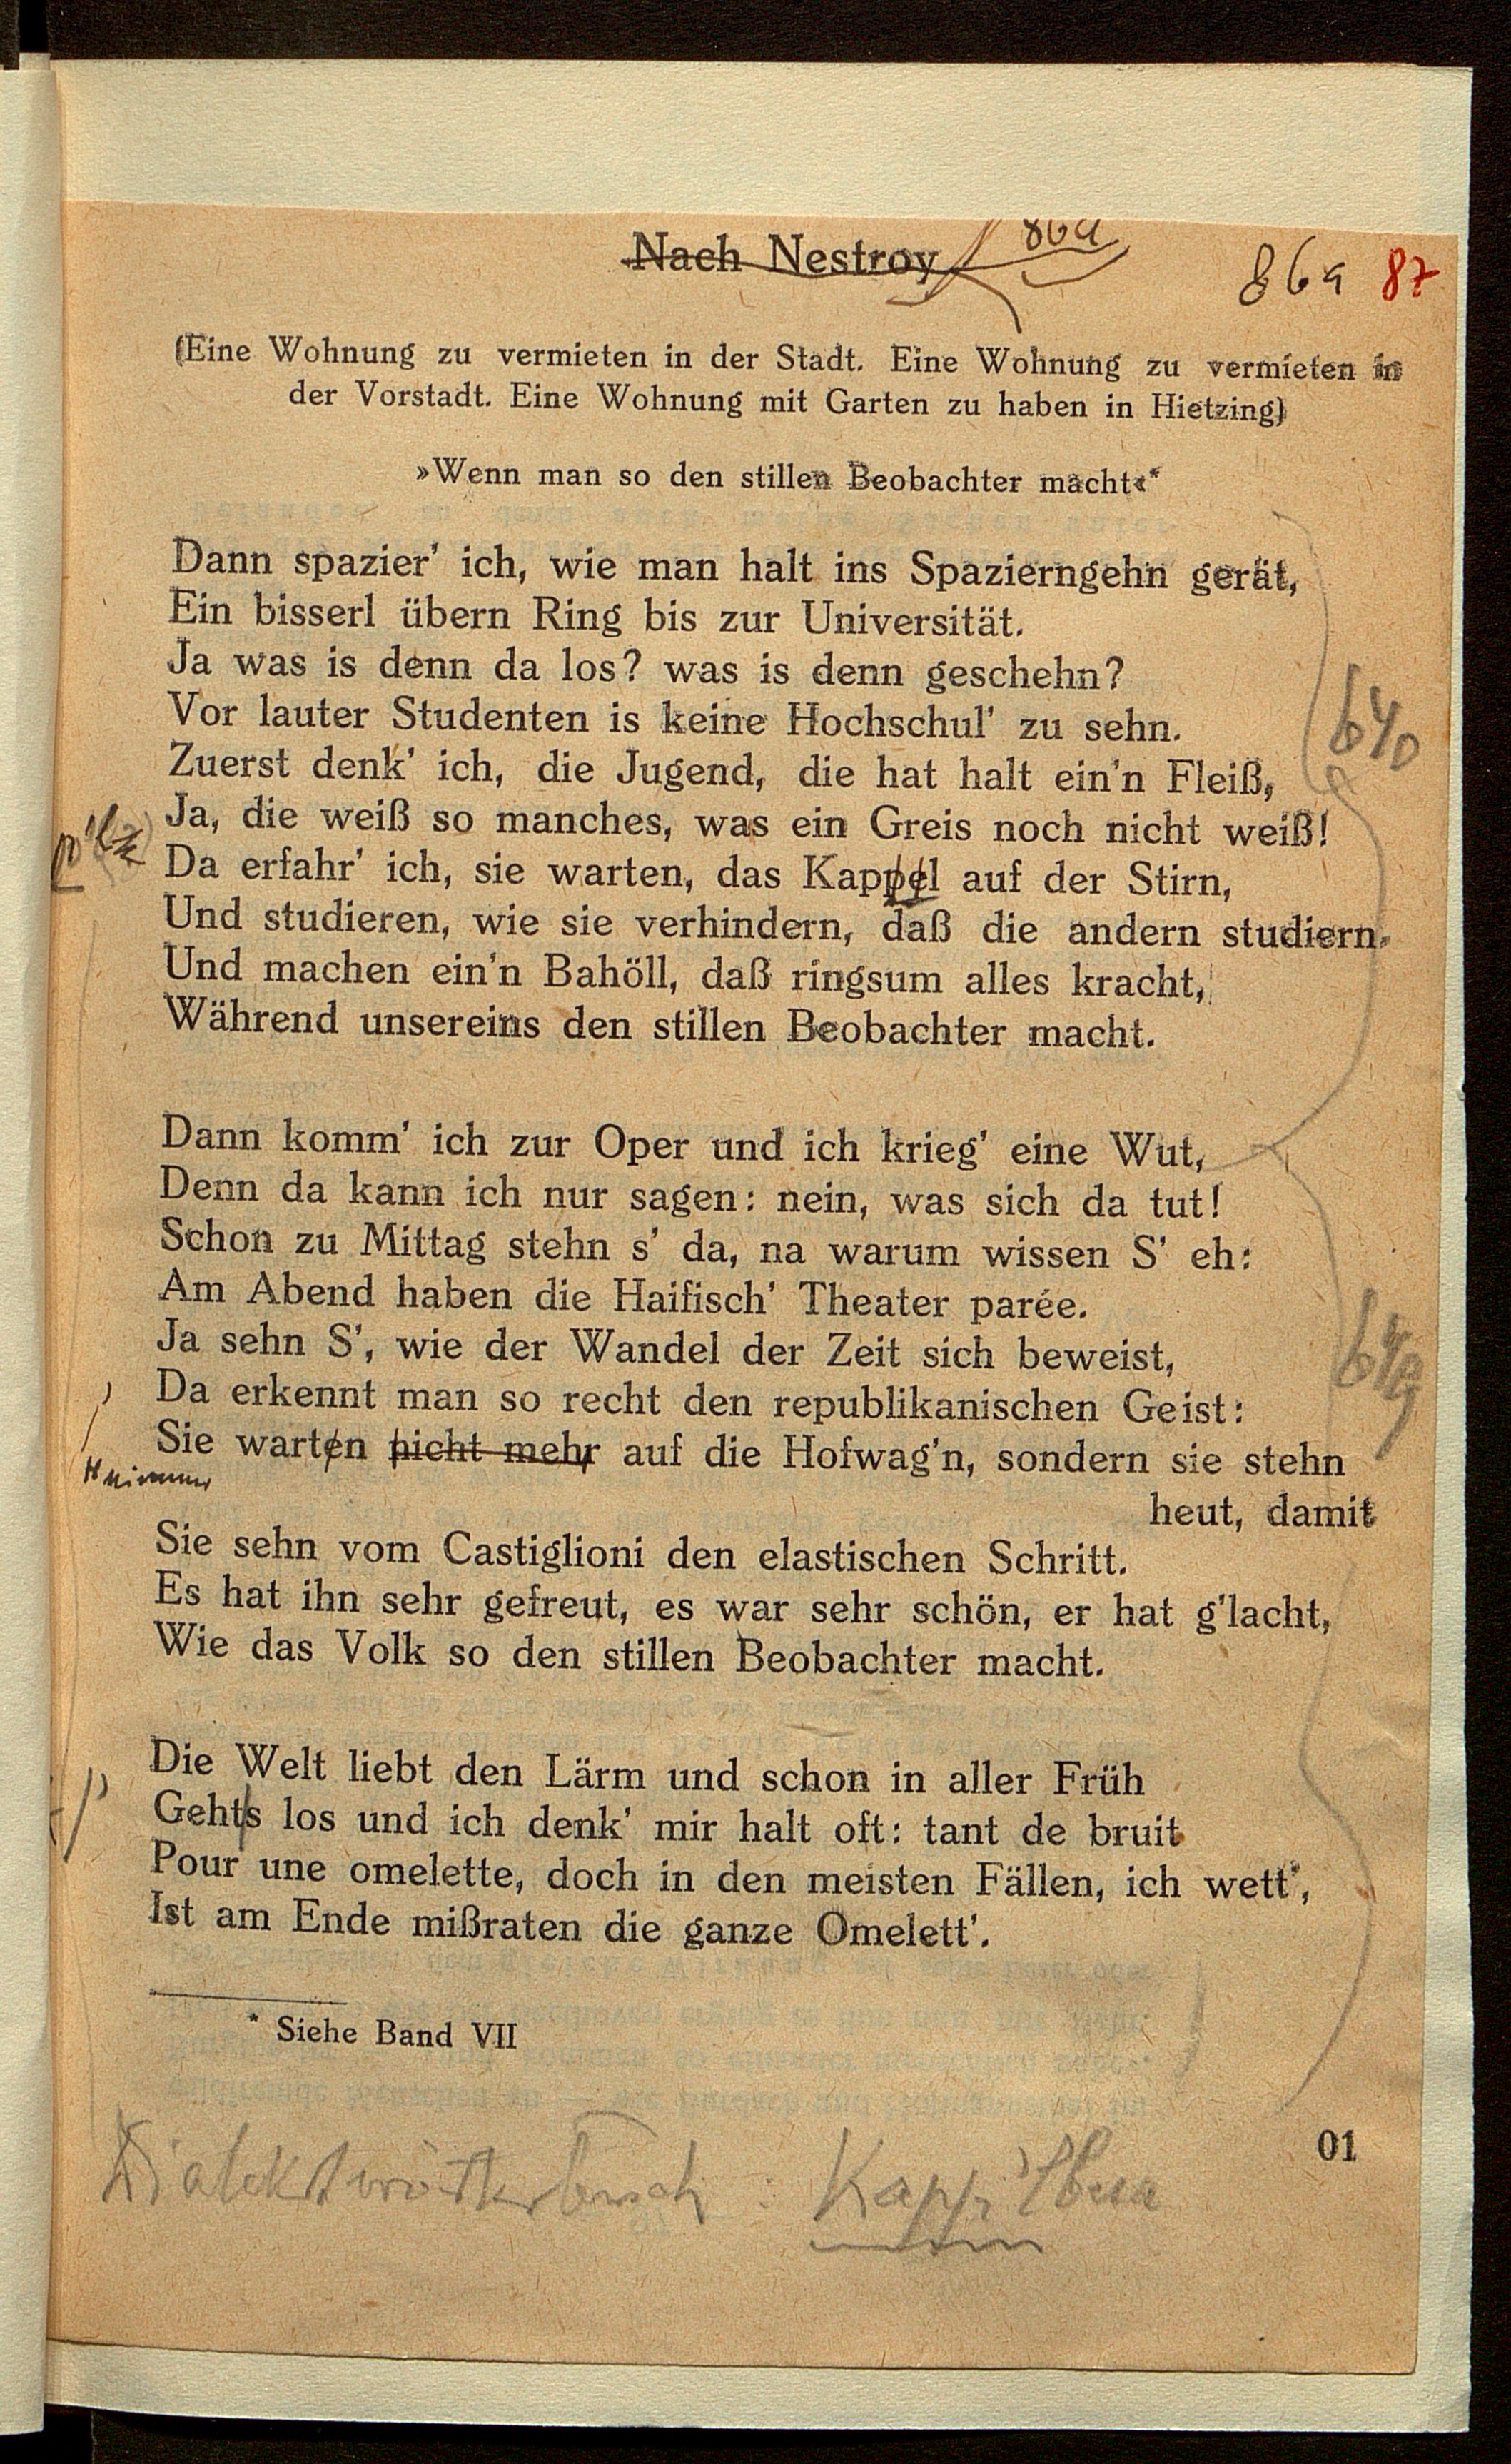 Nach Nestroy
86a
86a 87
(Eine Wohnung zu vermieten in der Stadt. Eine Wohnung zu vermieten in
der Vorstadt. Eine Wohnung mit Garten zu haben in Hietzing)
»Wenn man so den stillen Beobachter macht«*
Dann spazier' ich, wie man halt ins Spazierngehn gerät,
Ein bisserl übern Ring bis zur Universität.
Ja was is denn da los? was is denn geschehn?
Vor lauter Studenten is keine Hochschul' zu sehn.
640
Zuerst denk' ich, die Jugend, die hat halt ein'n Fleiß,
Ja, die weiß so manches, was ein Greis noch nicht weiß!
Da erfahr' ich, sie warten, das Kappel auf der Stirn,
Und studieren, wie sie verhindern, daß die andern studiern.
Und machen ein'n Bahöll, daß ringsum alles kracht,
Während unsereins den stillen Beobachter macht.
Dann komm' ich zur Oper und ich krieg' eine Wut,
Denn da kann ich nur sagen: nein, was sich da tut!
Schon zu Mittag stehn s' da, na warum wissen S' eh:
Am Abend haben die Haifisch' Theater parée.
Ja sehn S', wie der Wandel der Zeit sich beweist,
Da erkennt man so recht den republikanischen Geist:
Sie warten nicht mehr auf die Hofwag'n, sondern sie stehn
heut, damit
Sie sehn vom Castiglioni den elastischen Schritt.
Es hat ihn sehr gefreut, es war sehr schön, er hat g'lacht,
Wie das Volk so den stillen Beobachter macht.
Die Welt liebt den Lärm und schon in aller Früh
Gehts los und ich denk' mir halt oft: tant de bruit
Pour une omelette, doch in den meisten Fällen, ich wett',
Ist am Ende mißraten die ganze Omelett'.
* Siehe Band VII
01
Dialektwörterbuch :